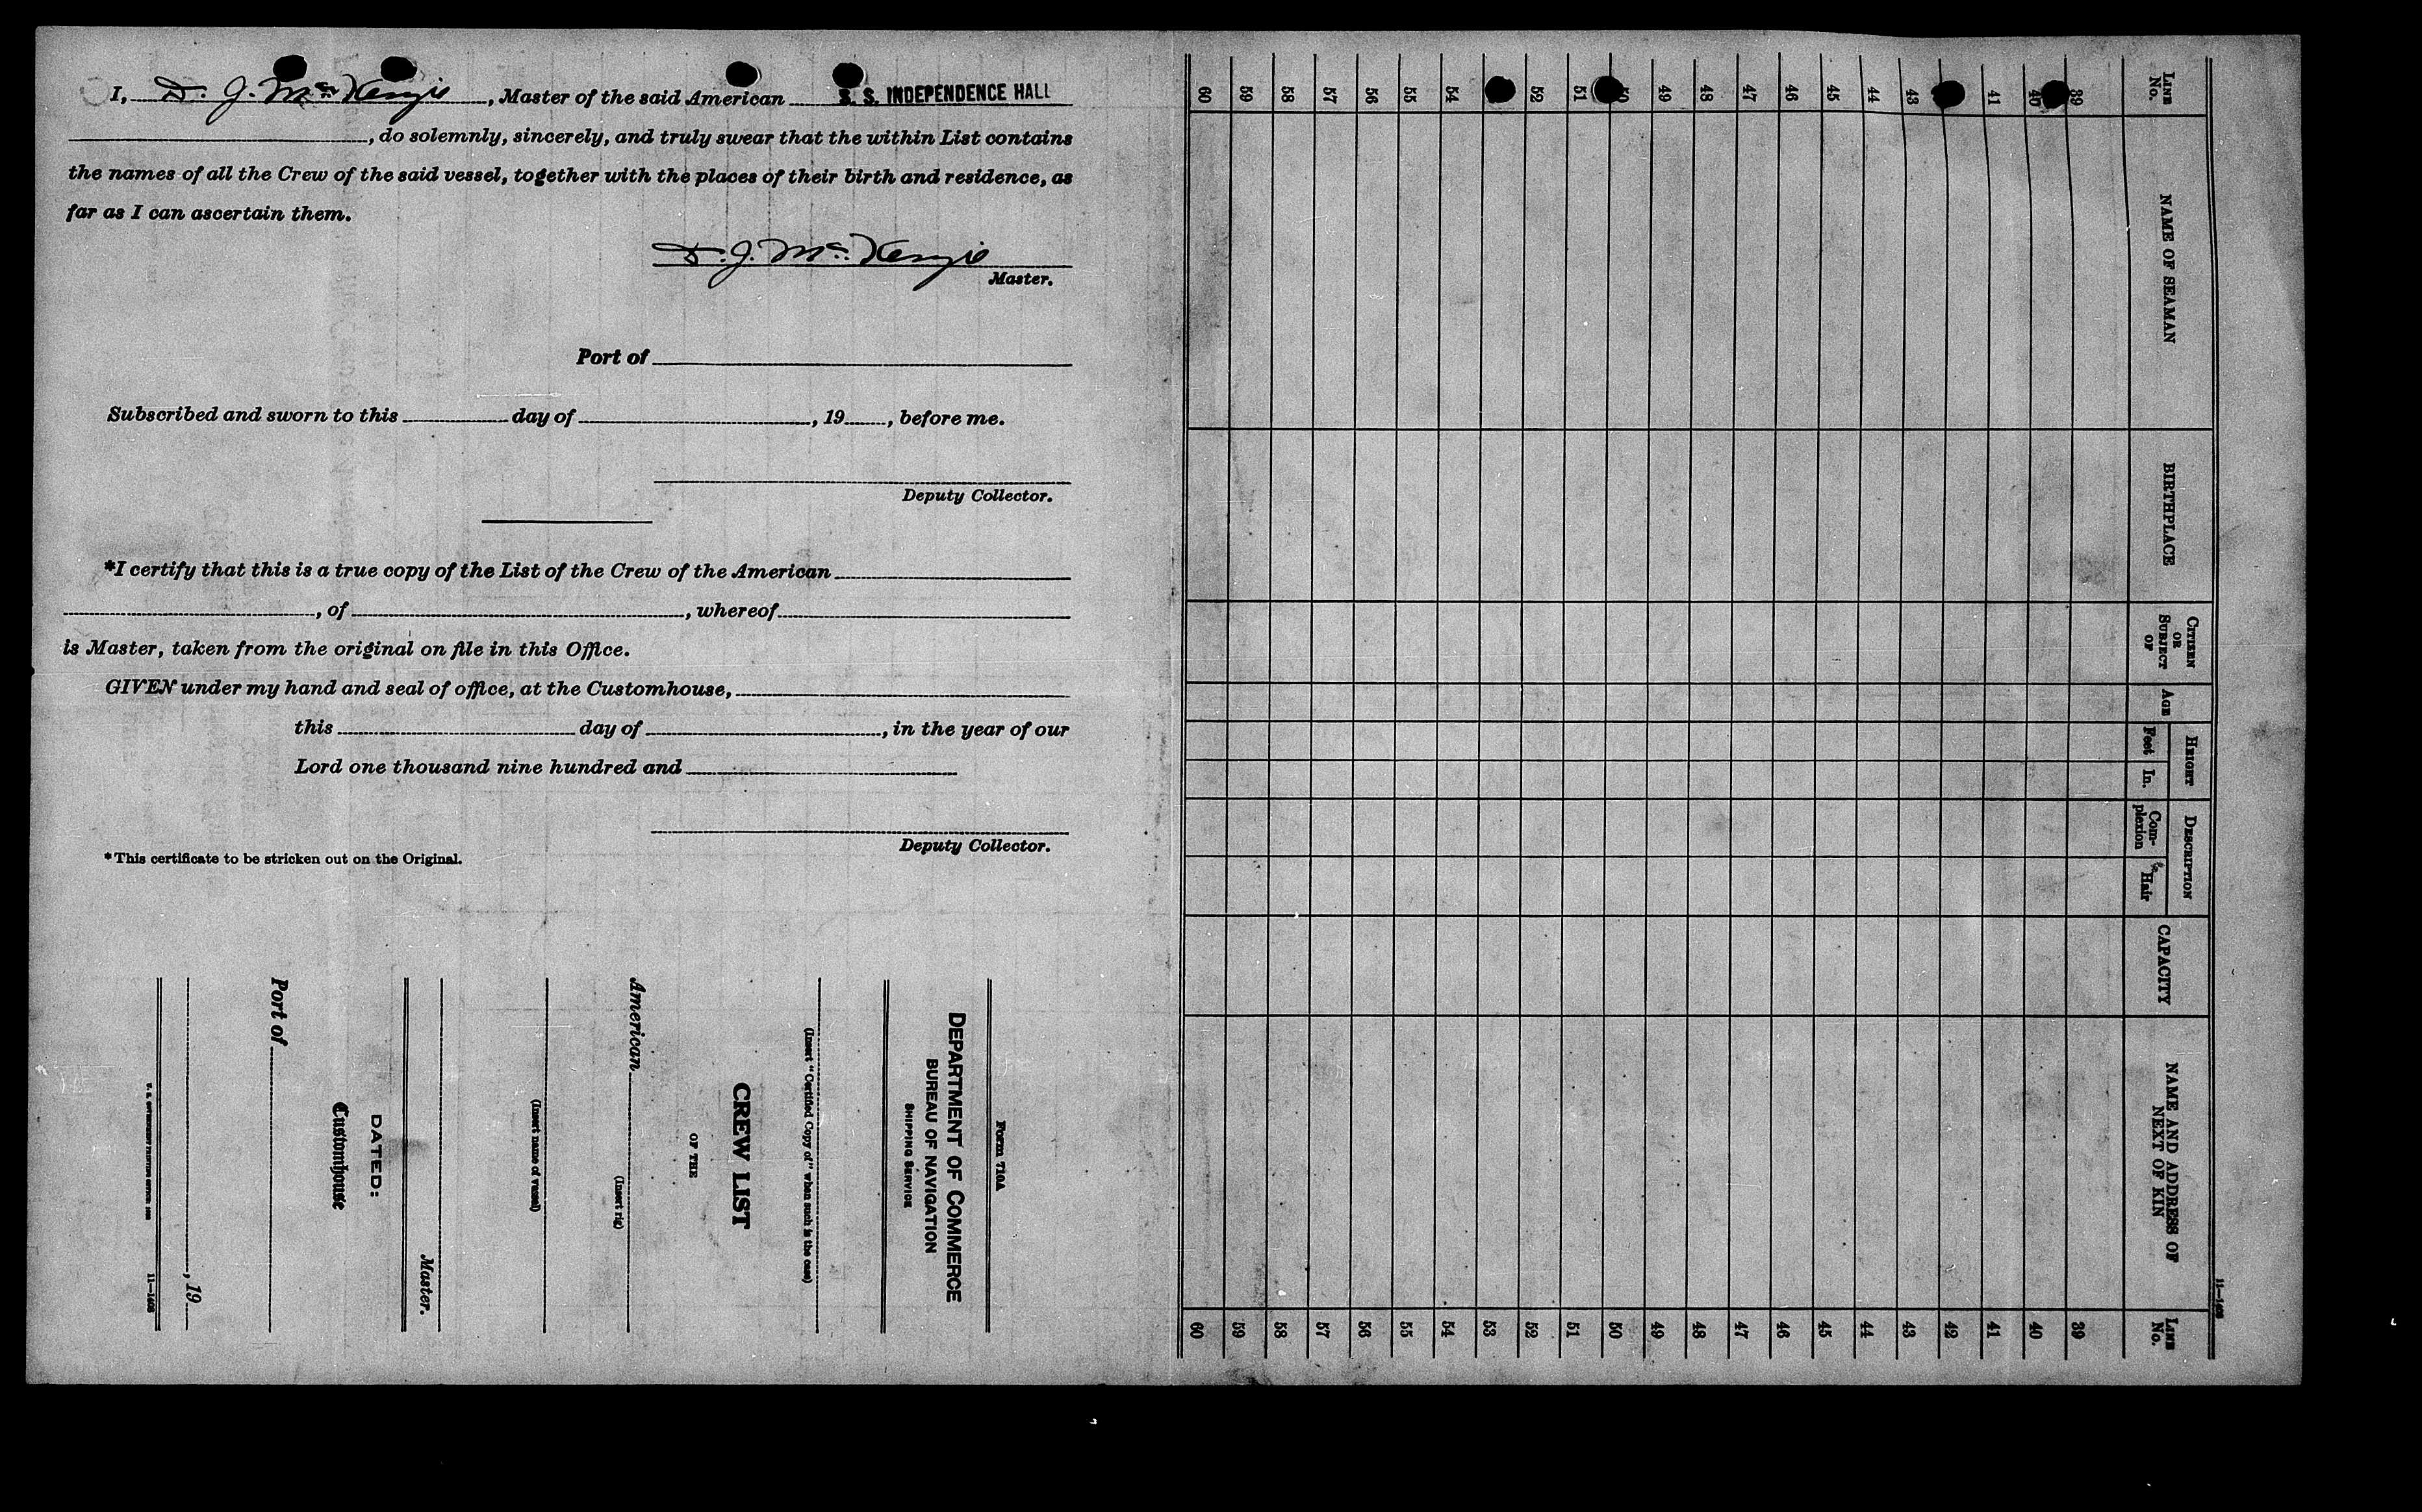 I, D. J. McKenzie, Master of the said American S. S. INDEPENDENCE HALL
, do solemnly, sincerely, and truly swear that the within List contains
the names of all the Crew of the said vessel, together with the places of their birth and residence, as
far as I can ascertain them.
D. J. McKenzie
Master.
Port of
Subscribed and sworn to this day of , 19 , before me.
Deputy Collector.
*I certify that this is a true copy of the List of the Crew of the American
, of , whereof
is Master, taken from the original on file in this Office.
GIVEN under my hand and seal of office, at the Customhouse,
this day of , in the year of our
Lord one thousand nine hundred and
Deputy Collector.
*This certificate to be stricken out on the Original.
Form 710A
DEPARTMENT OF COMMERCE
BUREAU OF NAVIGATION
SHIPPING SERVICE
(Insert "Certified Copy of" when such is the case)
CREW LIST
OF THE
American
(Insert rig)
(Insert name of vessel)
Master.
DATED:
Customhouse
Port of
, 19
U. S. GOVERNMENT PRINTING OFFICE
11—1408
11—1408
LINE No. NAME OF SEAMAN BIRTHPLACE CITIZEN OR SUBJECT OF AGE HEIGHT Feet In. DESCRIPTION Complexion Hair CAPACITY NAME AND ADDRESS OF NEXT OF KIN LINE No.
39 39
40 40
41 41
42
43 43
44 44
45 45
46 46
47 47
48 48
49 49
50 50
51 51
52 52
53
54 54
55 55
56 56
57 57
58 58
59 59
60 60